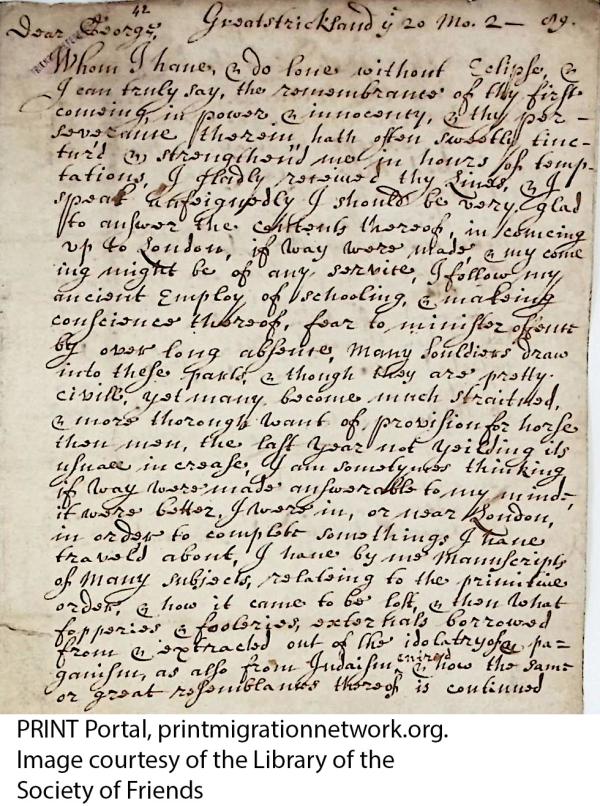 42
Dear George, Greatstrickland yͤ 20 Mo. 2 — 89.
Whom I have, & do love without Eclipse, &
I can truly say, the remembrance of thy first
comeing, in power & innocency, & thy per-
severance therein, hath often sweetly tinc-
tur'd & strengthend me in hours of temp-
tations, I gladly received thy Lines, & I
speak unfeignedly I should be very glad
to answer the contents thereof, in comeing
up to London, if way were made, & my come
ing might be of any service, I follow my
ancient Employ of schooling, & makeing
conscience thereof, fear to minister offence
by over long absence, Many Souldiers draw
into these parts, & though they are pretty
civill, yet many become much straitned,
& more thorough want of provision for horse
then men, the last year not yeilding its
usuall increase, I am sometymes thinking
if way were made answerable to my mind,
it were better, I were in, or near London,
in order to compleat somethings I have
traveld about, I have by me Manuscripts
of Many Subjects, relateing to the primitive
order, & how it came to be lost, & then what
fopperies & fooleries, externals borrowed
from & extracted out of the idolatry of pa=
ganism, as also from Judaism, & how the same
or great resemblances thereof is continued
PRINT Portal, printmigrationnetwork.org.
Image courtesy of the Library of the
Society of Friends